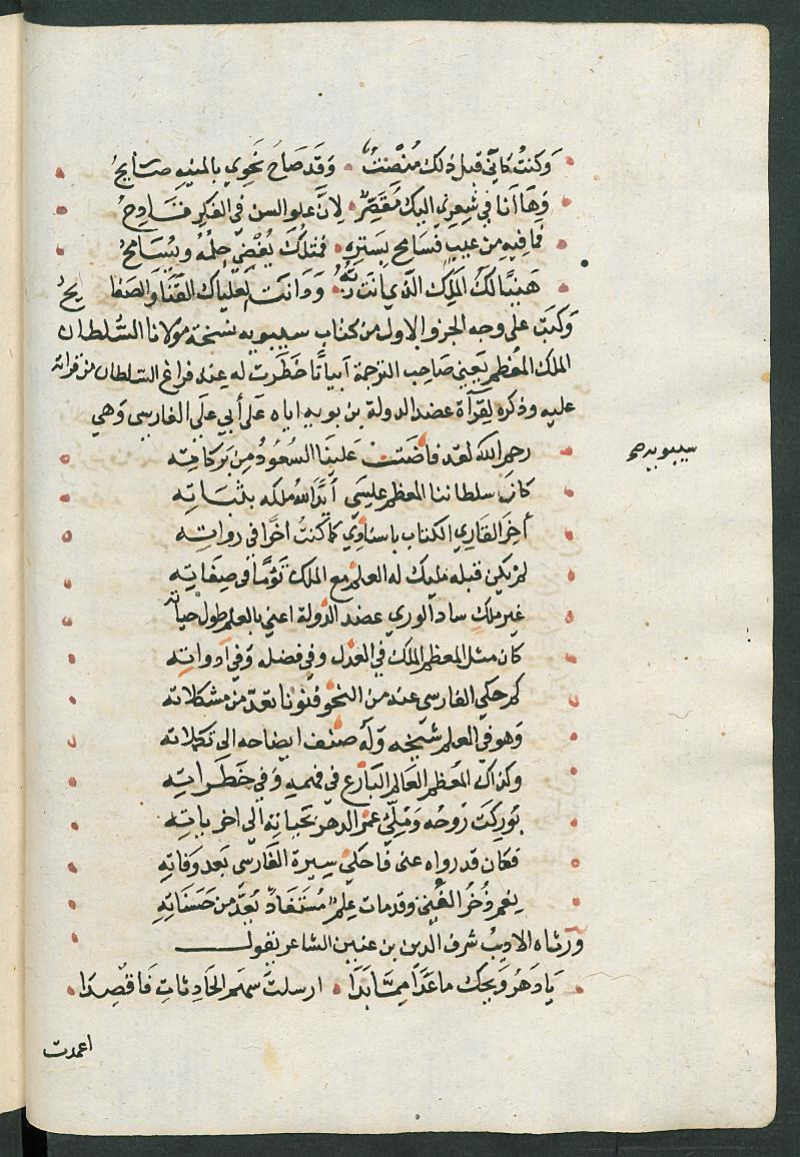 وَكنتُ كانّي قبل ذلك مُنْصَتٌ • وَقَد صَاحَ نحوي بالمنيه صَايحُ
وَهَا أنا في شِعري اليك مُقصّرٌ • لِانّ علو السن في الفكر قادحُ
فما فيه من عيبٍ فسامح بستره • فمثلك يُغضي حِلمُه ويُسَامحُ
هَنيئًا لك الملك الذي انت ربُّه • وَدانت لعلياك القنا والصفايحُ
وَكتب على وجه الجزو الاول من كتاب سيبويه نسخة مولانا السُّلطان
الملك المُعظم يَعني صَاحب الترجمة ابياتًا خطَرت له عِند فراغ السلطان من قراته
عليه وذكره لقرآة عضد الدولة بن بويه اياه عَلى أبي علي الفارسي وَهي
رحم الله لقد فاضت عَلينَا السُعودُ من بَركاتِه
كان سلطاننا المعظم عليسَى أيَّد الله ملكه بثباتِه
أخِرَ القاري الكتاب باسنادي كما كنتُ اخرًا في رواتِه
لم يكن قبله مليك له العلم مع الملك تَوْمًا في صِفاتِه
غير ملكٍ ساد الوري عضد الدَولة اعني بالعلم طول حياته
كان مثل المعظم الملك في العَدل وفي فضله وَفي ادواتِه
كم حكي الفارسي عنه من النحو فنونا تعدّ من مشكلاته
وَهو في العلم شيخه وَله صنف ايضاحه الي تكملاته
وكذاك المُعظم العَالم البَارع في فهمه وَفي خطَراتِه
بُوركت رُوحُه وَمُلّي عمر الدهر بحياته الي اخرياتِه
فكان قد رواه عني فاحكي سِيرة الفَارسي بَعد وَفاتِه
نِعم ذُخرُ الغني وقدمات عِلمٌ مُستفادٌ يُعدّ من حَسَناتِهِ
وَرَثاه الاديبُ شرف الدين بن عنين الشاعر بقوله
يَا دَهرُ وَيحك ما عَدَا مِمّا بَدَا • ارسلتَ سهم الحَادِثاتِ فَاقصدَا
اعمدت
سيبويه